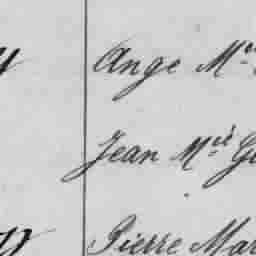 Ange Me
Jean Mie
Pierre Mar